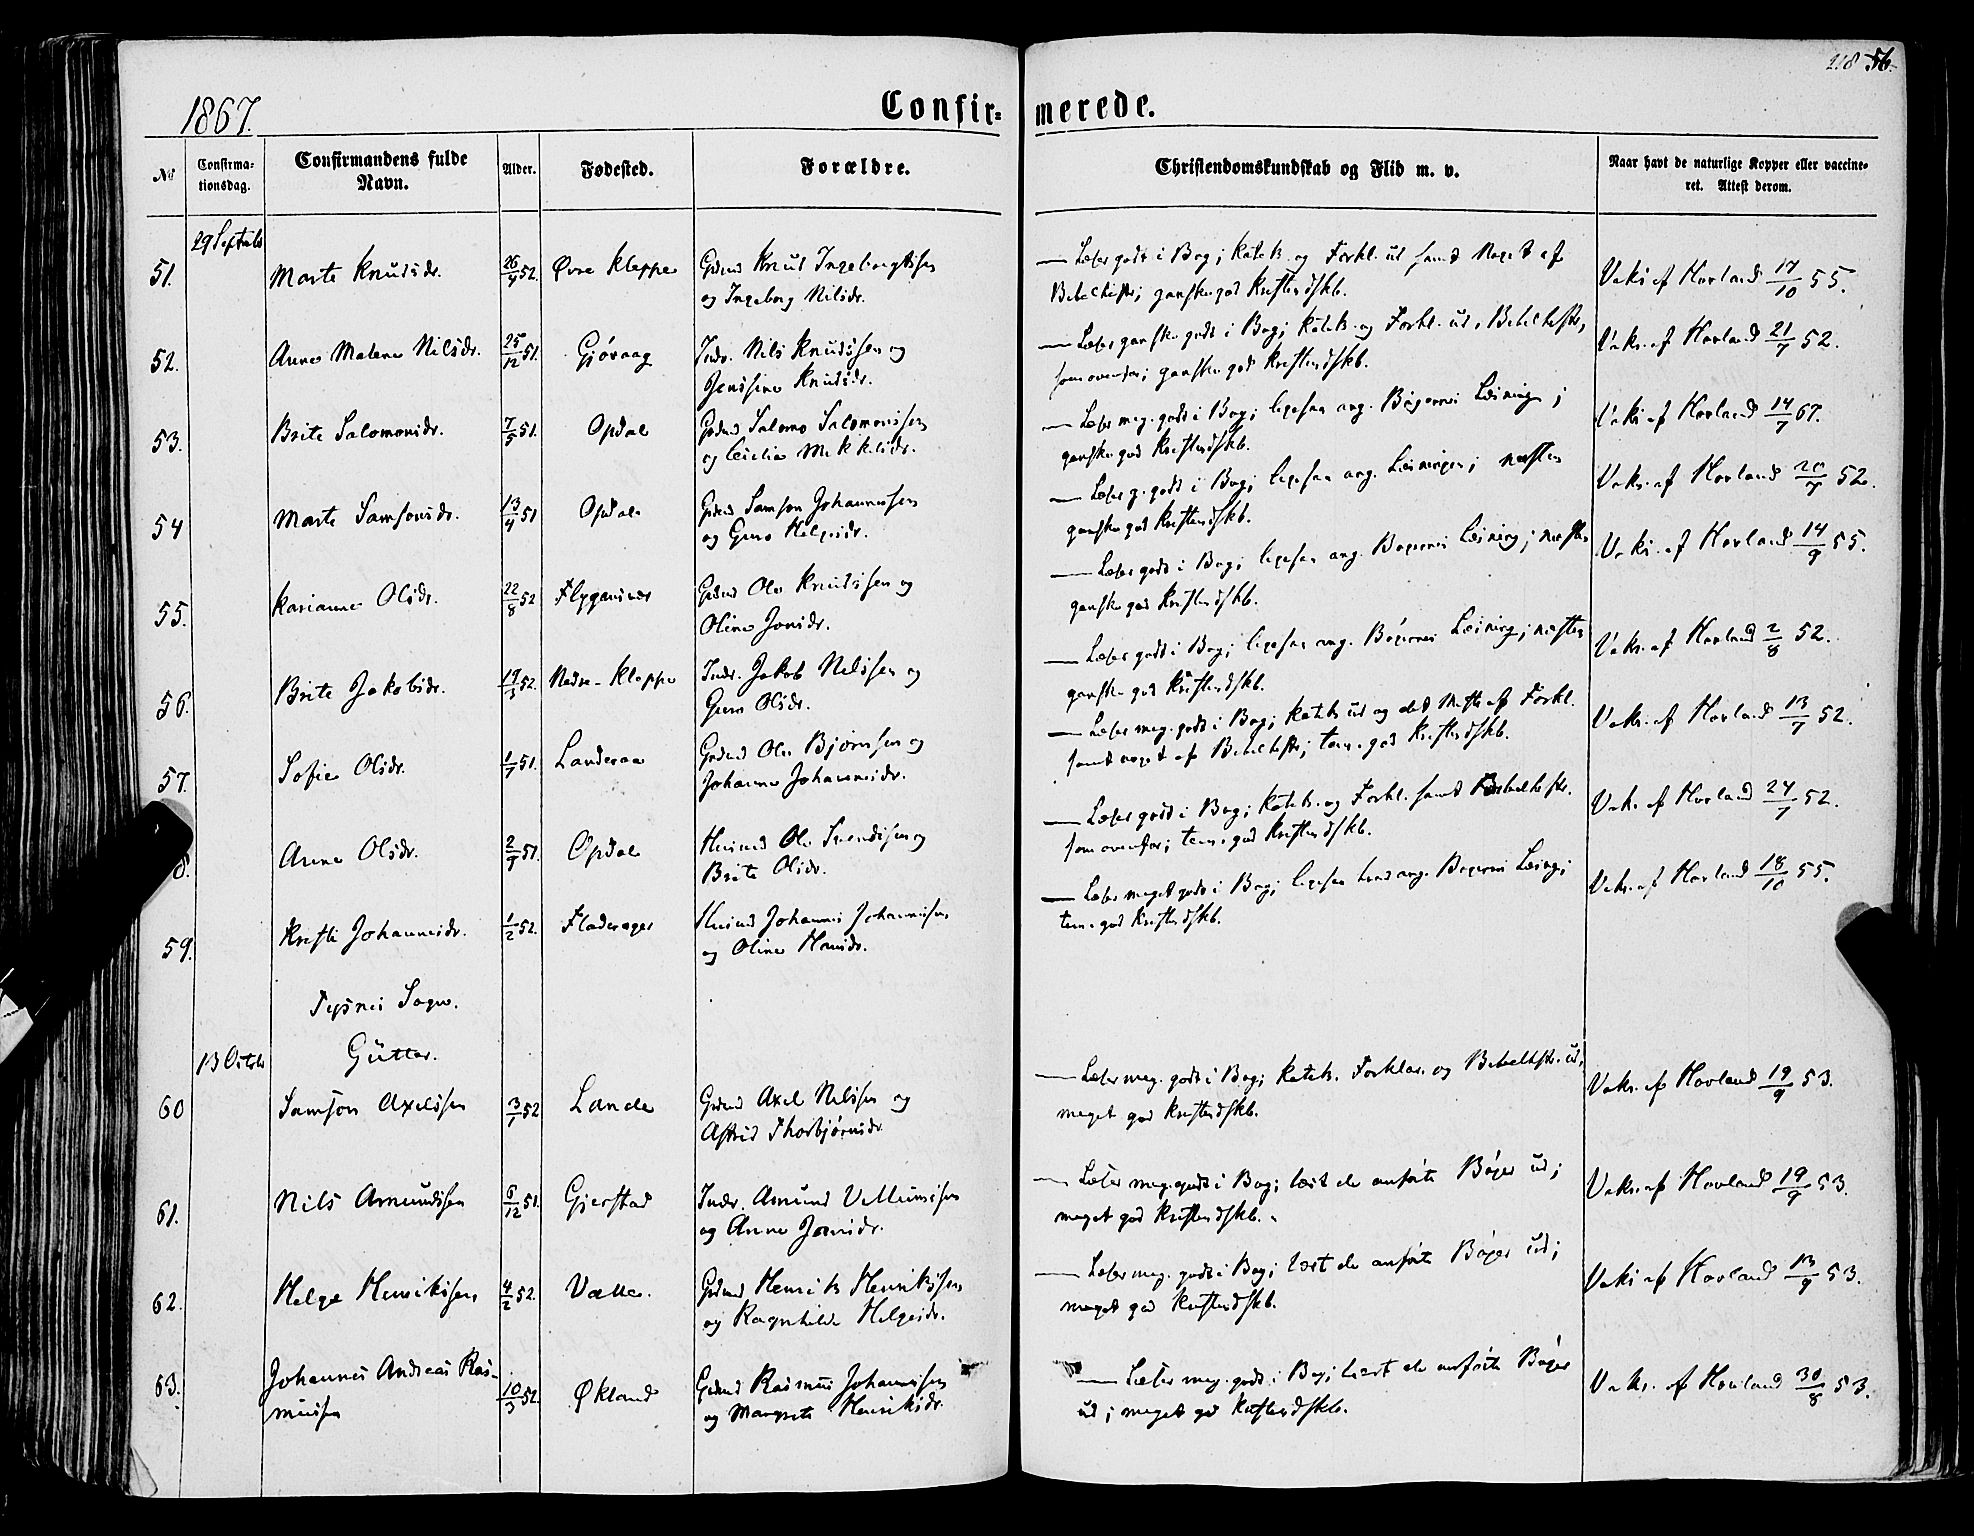 218 56.
1867.
Confir=
merede.
№
Confirma=
tionsdag.
Confirmandens fulde
Navn.
Alder.
Fødested.
Forældre.
Christendomskundskab og Flid m. v.
Naar havt de naturlige Kopper eller vaccine=
ret. Attest derom.
29 Septbr
51.
Marte Knutsdr.
26/4 52.
Øvre Kleppe
Grdmd Knut Ingebrigtsen
og Ingeborg Nilsdr.
— Læser godt i Bog; Katek. og Forkl. ud samt Noget af
Bibelhistr; ganske god Kristendskb.
Vaks. af Hovland 17/10 55.
52.
Anne Malene Nilsdr.
25/12 51.
Gjøvaag
Indr. Nils Knudssen og
Jenssine Knutsdr.
— Læser ganske godt i Bog; Katek. og Forkl. ud, Bibelhistr,
som ovenfor; ganske god Kristendskb.
Vaks. af Hovland 21/7 52.
53.
Brite Salomonsdr.
7/5 51.
Opdal
Grdmd Salomo Salomonssen
og Cicilia Mikkelsdr.
— Læser meg. godt i Bog; ligesaa ang. Bøgernes Læsning;
ganske god Kristendskb.
Vaks af Hovland 14/7 67.
54
Marte Samsonsdr.
13/4 51
Opdal
Grdmd Samson Johannessen
og Guro Helgesdr.
— Læser g. godt i Bog; ligesaa ang. Læsningen; næsten
ganske god Kristendskb.
Vaks. af Hovland 20/7 52.
55.
Karianne Olsdr.
22/8 52
Flygansvær
Grdmd Ole Knutssen og
Oline Jonsdr.
— Læser godt i Bog; ligesaa ang. Bøgernes Læsning; næsten
ganske god Kristendskb.
Vaks. af Hovland 14/9 55.
56.
Brite Jakobsdr.
19/3 52.
Nedre-Kleppe
Indr. Jakob Nilssen og
Guro Olsdr.
— Læser godt i Bog; ligesaa ang. Bøgernes Læsning; næsten
ganske god Kristendskb.
Vaks. af Hovland 2/8 52.
57.
Sofie Olsdr.
1/7 51.
Landeraa
Grdmd Ole Bjørnsen og
Johanne Johannesdr.
— Læser meg. godt i Bog; Katek. ud og det Meste af Forkl.
samt noget af Bibelhistr; tem. god Kristendskb.
Vaks. af Hovland 13/7 52.
8.
Anne Olsdr.
2/9 51.
Opdal
Husmd Ole Svendssen og
Brite Olsdr.
— Læser godt i Bog; Katek. og Forkl. samt Bibelhistr.
som ovenfor; tem. god Kristendskb.
Vaks. af Hovland 24/7 52.
59.
Kristi Johannesdr.
1/2 52.
Fladerager
Husmd Johannes Johannessen
og Oline Hansdr.
— Læser meget godt i Bog; ligesaa hvad ang. Bøgernes Læsng;
tem. god Kristendskb.
Vaks. af Hovland 18/10 55.
Tysnes Sogn.
13 Octbr
Gutter.
60
Samson Axelssen
3/7 52
Lande
Grdmd Axel Nilssen og
Astrid Thorbjørnsdr.
— Læser meg. godt i Bog; Katek. Forklar. og Bibelhistr. ud;
meget god Kristendskb.
Vaks. af Hovland 19/9 53.
61.
Nils Amundssen
6/12 51.
Gjerstad
Indr. Amund Villumssen
og Anne Jonsdr.
— Læser meg. godt i Bog; læst de anførte Bøger ud;
meget god Kristendskb.
Vaks. af Hovland 19/9 53.
62.
Helge Henrikssen
4/2 52.
Valle.
Grdmd Henrik Henrikssen
og Ragnhilde Helgesdr.
— Læser meg. godt i Bog; læst de anførte Bøger ud;
meget god Kristendskb.
Vaks af Hovland 13/9 53.
63.
Johannes Andreas Ras-
mussen
10/3 52.
Økland
Grdmd Rasmus Johannessen
og Margrete Henriksdr.
— Læser meg. godt i Bog; læst de anførte Bøger
ud; meget god Kristendskb.
Vaks. af Hovland 30/8 53.